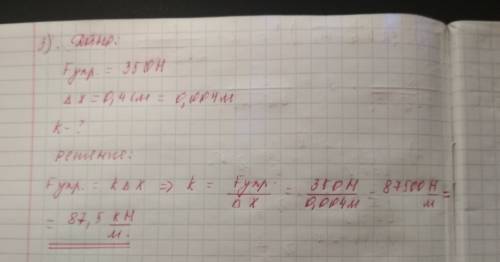 3). Дано:
Fупр. = 350Н
Δx = 0,4см = 0,004м
k - ?
Решение:
Fупр. = kΔx => k = Fупр./Δx = 350Н/0,004м = 87500 Н/м =
= 87,5 кН/м.